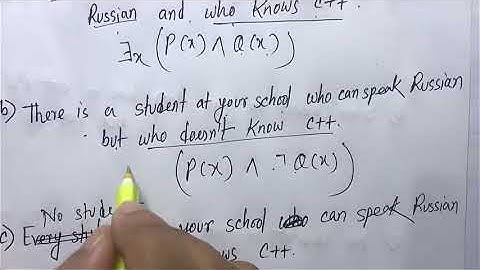 Russian and who knows C++.
∃x (P(x) ∧ Q(x))
b) There is a student at your school who can speak Russian
but who doesn't know C++.
(P(x) ∧ ¬Q(x))
No stude
c) your school can speak Russian
ows C++.